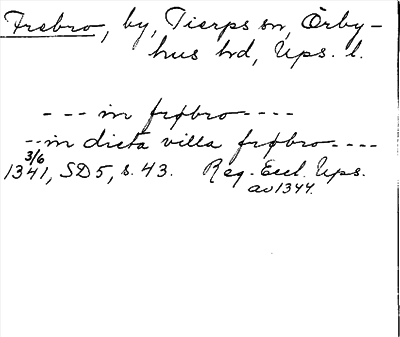 Frebro, by, Tierps sn, Örby-
hus hd, Ups. l.
--- in frøbro----
--in dicta villa frøbro----
3/6
1341, SD5, s. 43. Reg. Eccl. Ups.
av 1344.